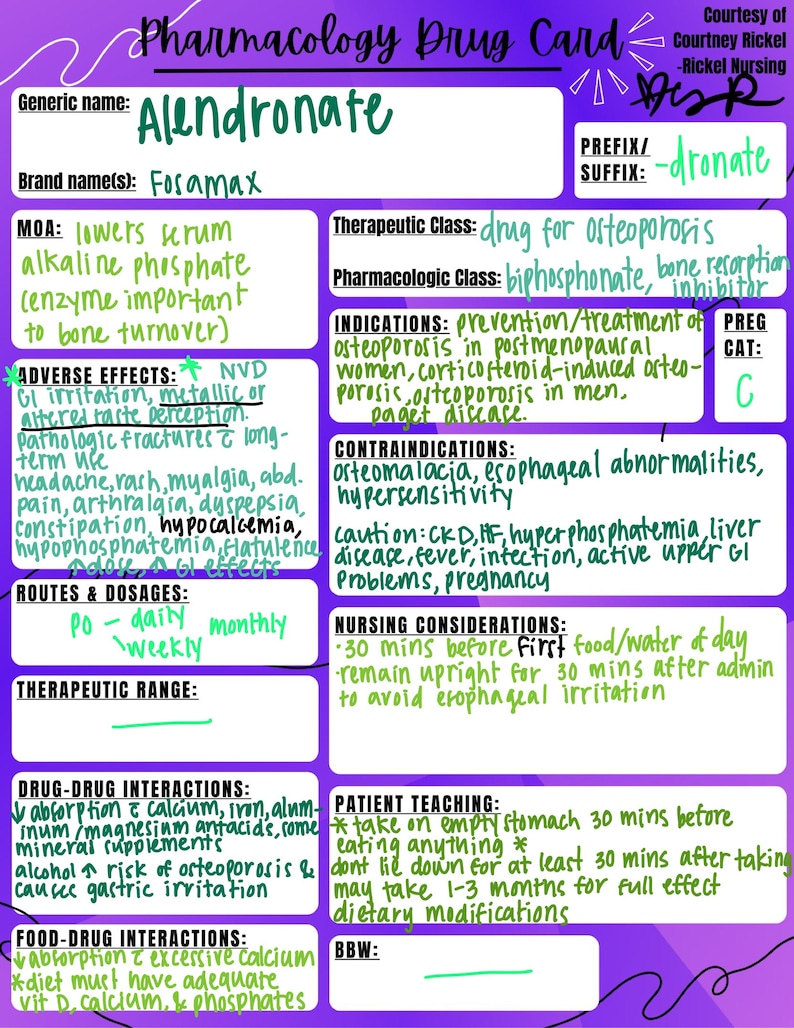 Pharmacology Drug Card
Courtesy of
Courtney Rickel
-Rickel Nursing
Generic name: Alendronate
Brand name(s): Fosamax
PREFIX/
SUFFIX: -dronate
MOA: lowers serum
alkaline phosphate
(enzyme important
to bone turnover)
Therapeutic Class: drug for osteoporosis
Pharmacologic Class: biphosphonate, bone resorption
inhibitor
INDICATIONS: prevention/treatment of
osteoporosis in postmenopaural
women, corticosteroid-induced osteo-
porosis, osteoporosis in men,
paget disease.
PREG
CAT:
C
*ADVERSE EFFECTS: * NVD
GI irritation, metallic or
altered taste perception.
pathologic fractures c̄ long-
term use
headache, rash, myalgia, abd.
pain, arthralgia, dyspepsia,
constipation, hypocalcemia,
hypophosphatemia, flatulence
↑ dose, ↑ GI effects
CONTRAINDICATIONS:
osteomalacia, esophageal abnormalities,
hypersensitivity
caution: CKD, HF, hyperphosphatemia, liver
disease, fever, infection, active upper GI
problems, pregnancy
ROUTES & DOSAGES:
PO - daily monthly
\weekly
THERAPEUTIC RANGE:
NURSING CONSIDERATIONS:
·30 mins before first food/water of day
·remain upright for 30 mins after admin
to avoid esophageal irritation
DRUG-DRUG INTERACTIONS:
↓ absorption c̄ calcium, iron, alum-
inum/magnesium antacids, some
mineral supplements
alcohol ↑ risk of osteoporosis &
causes gastric irritation
PATIENT TEACHING:
* take on empty stomach 30 mins before
eating anything *
dont lie down for at least 30 mins after taking
may take 1-3 months for full effect
dietary modifications
FOOD-DRUG INTERACTIONS:
↓ absorption c̄ excessive calcium
*diet must have adequate
vit D, calcium, & phosphates
BBW: